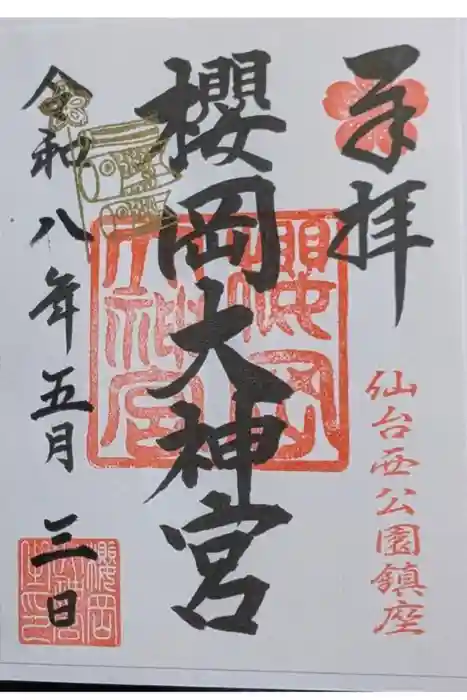 奉拝
仙台西公園鎮座
櫻岡大神宮
櫻岡大神宮
令和八年五月三日